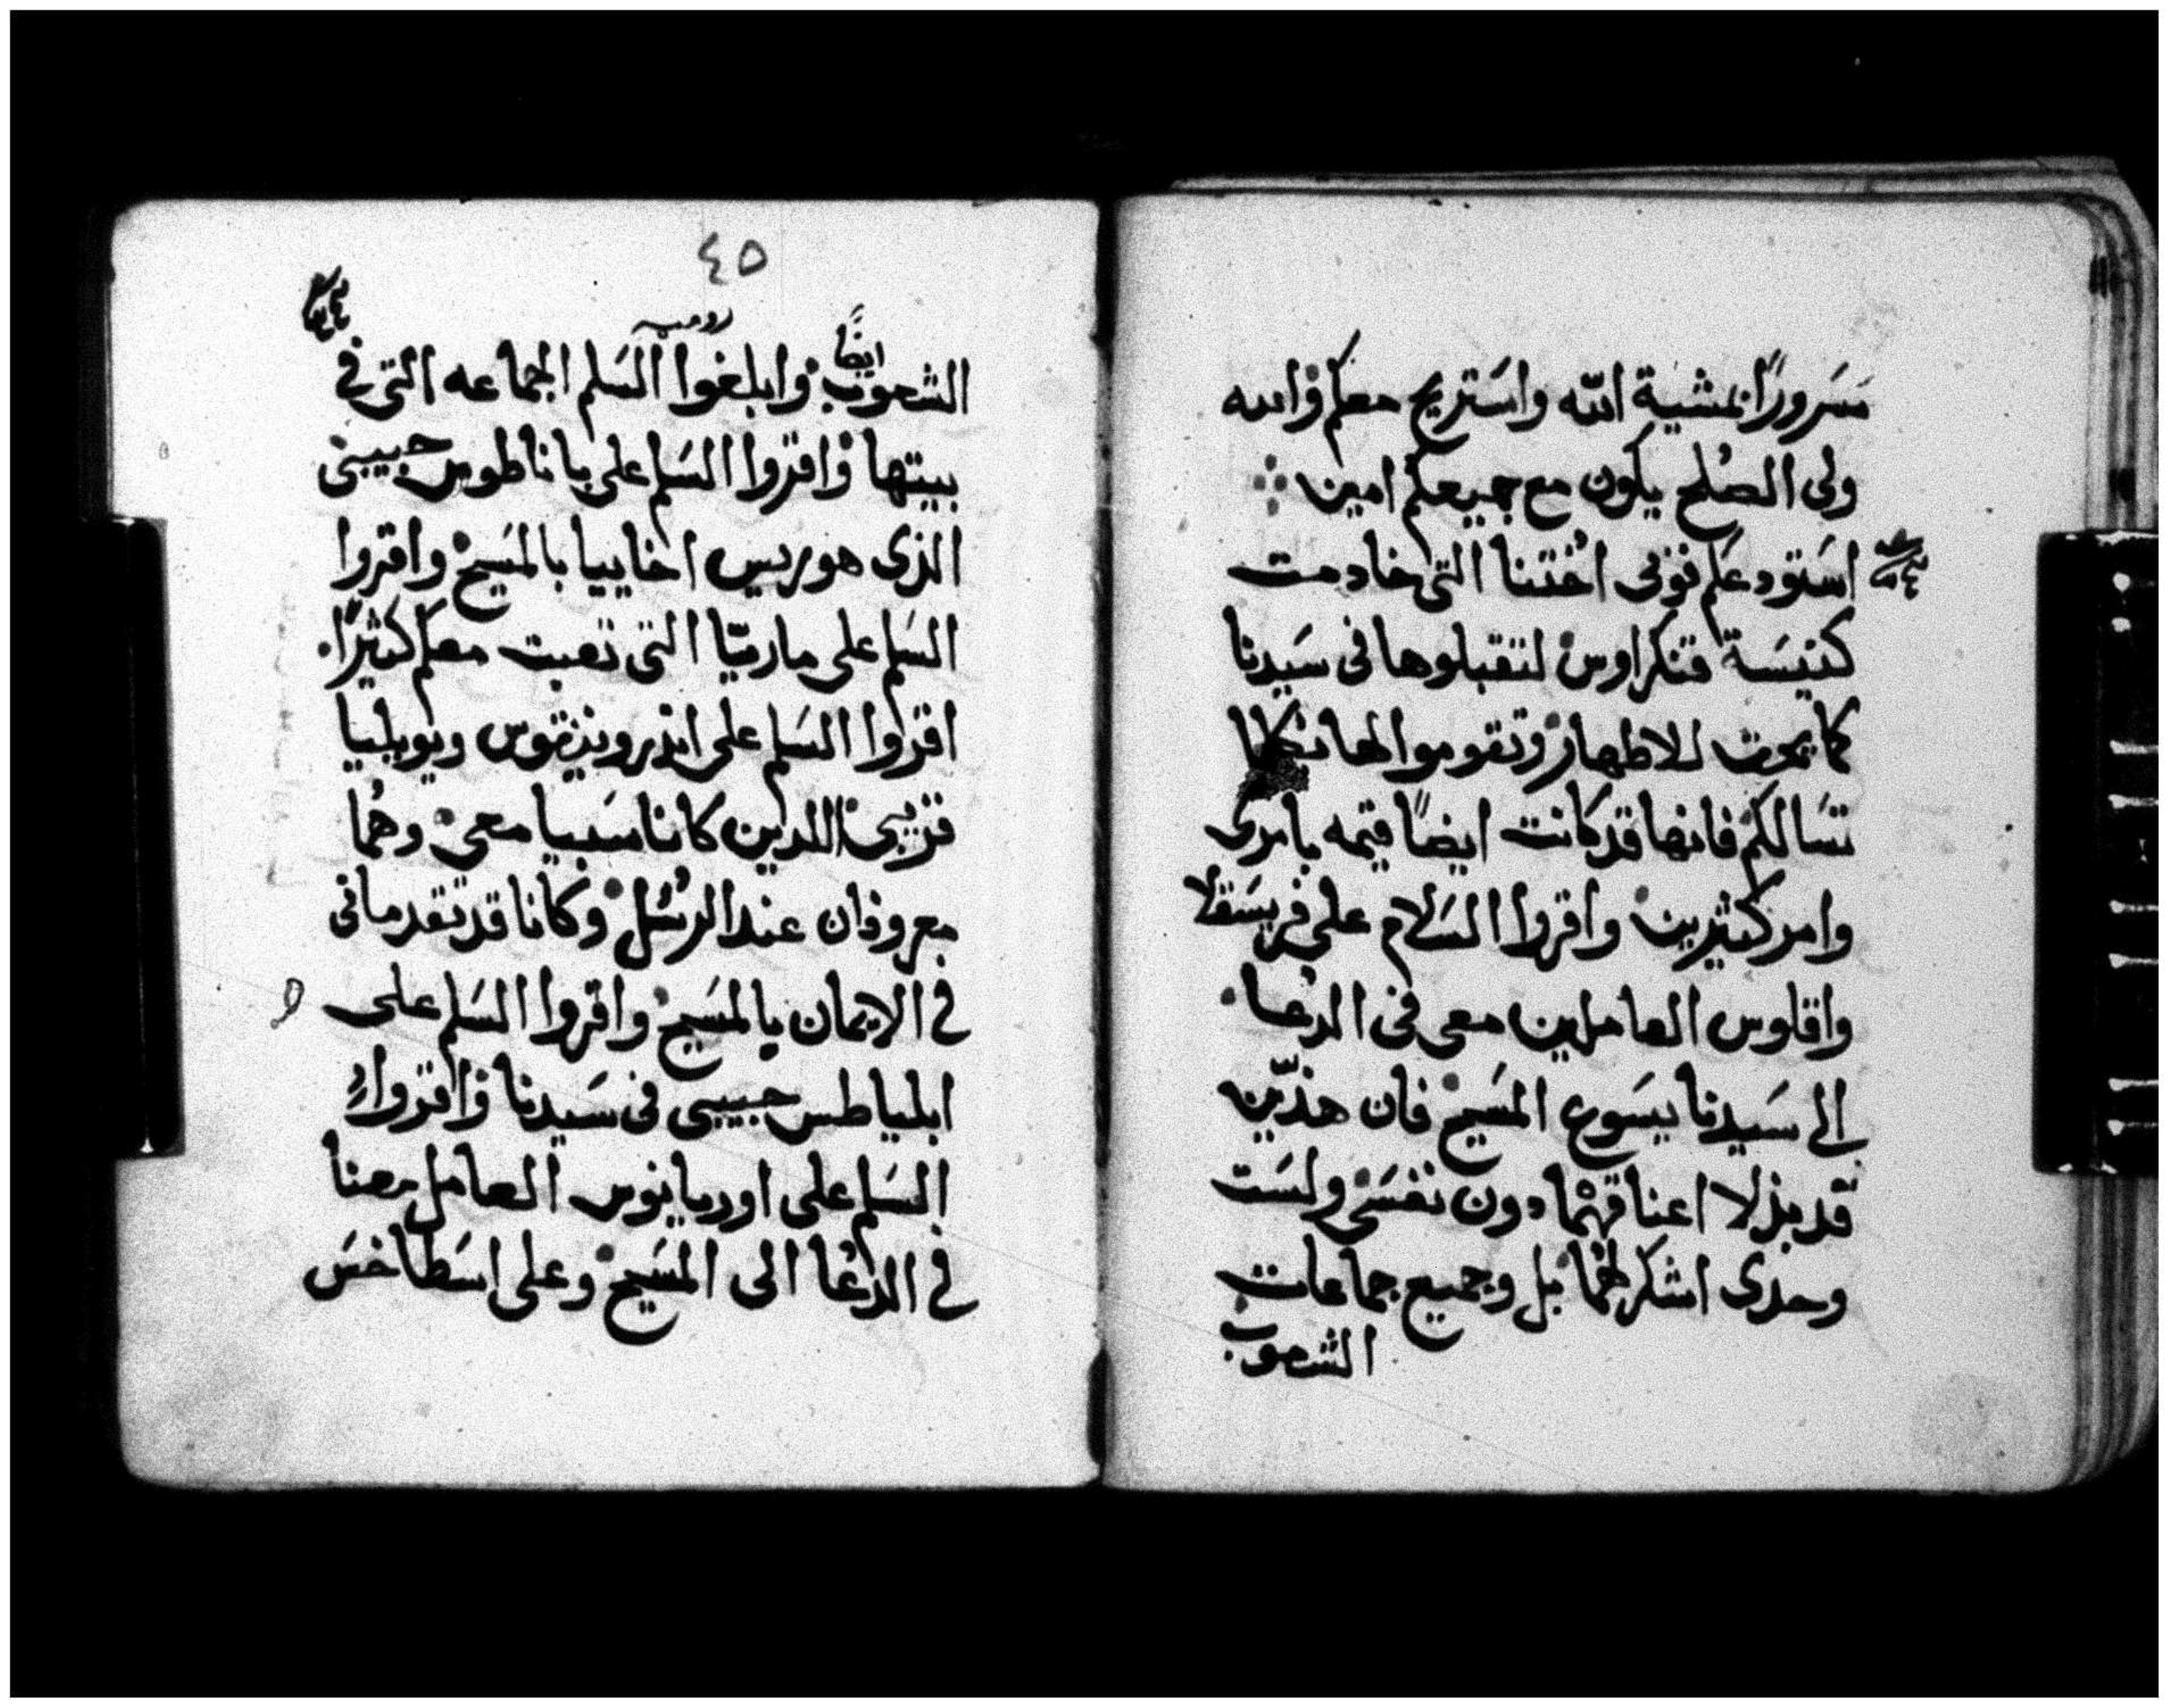 مسَرورًا بمشية الله واستريح معكم والله
ولى الصُلح يكون مع جميعكم امين
استودعكم فوفى اخُتنا التى خادمت
كنيسَة قنكراوس لتقبلوها فى سَيدنا
كما يحق للاطهار وتقوموا لها بكلما
تسَالكم فانها قد كانت ايضًا قيمه بامرى
وامر كثيرين واقروا السَلام على فريسَقلا
واقلوس العاملين معى فى الدعا
الى سَيدنا يسَوع المسَيح فان هذَين
قد بذلا اعناقهمُا دون نفسَى ولسَت
وحدى اشكرلهمُا بل وجميع جماعات
الشعوب
٤٥
روميه
ايضًا
الشعوب وابلغوا السَلم الجماعه التى فى
بيتها واقروا السَلم على باناطوس حبيبى
الذى هو ريس اخاييا بالمسَيح واقروا
السَلم على ماريّا التى تعبت معكم كثيرًا
اقروا السَلم على اندرونيقوس ويوبليا
قريبى اللدين كانا سَبيا معى وهمُا
معروفان عند الرسُل وكانا قد تقدمانى
فى الايمان بالمسَيح واقروا السَلم على
ابلياطس حبيبى فى سَيدنا واقروا
السَلم على اوربانوس العامل معنا
فى الدعُا الى المسَيح وعلى اسَطاخسَ